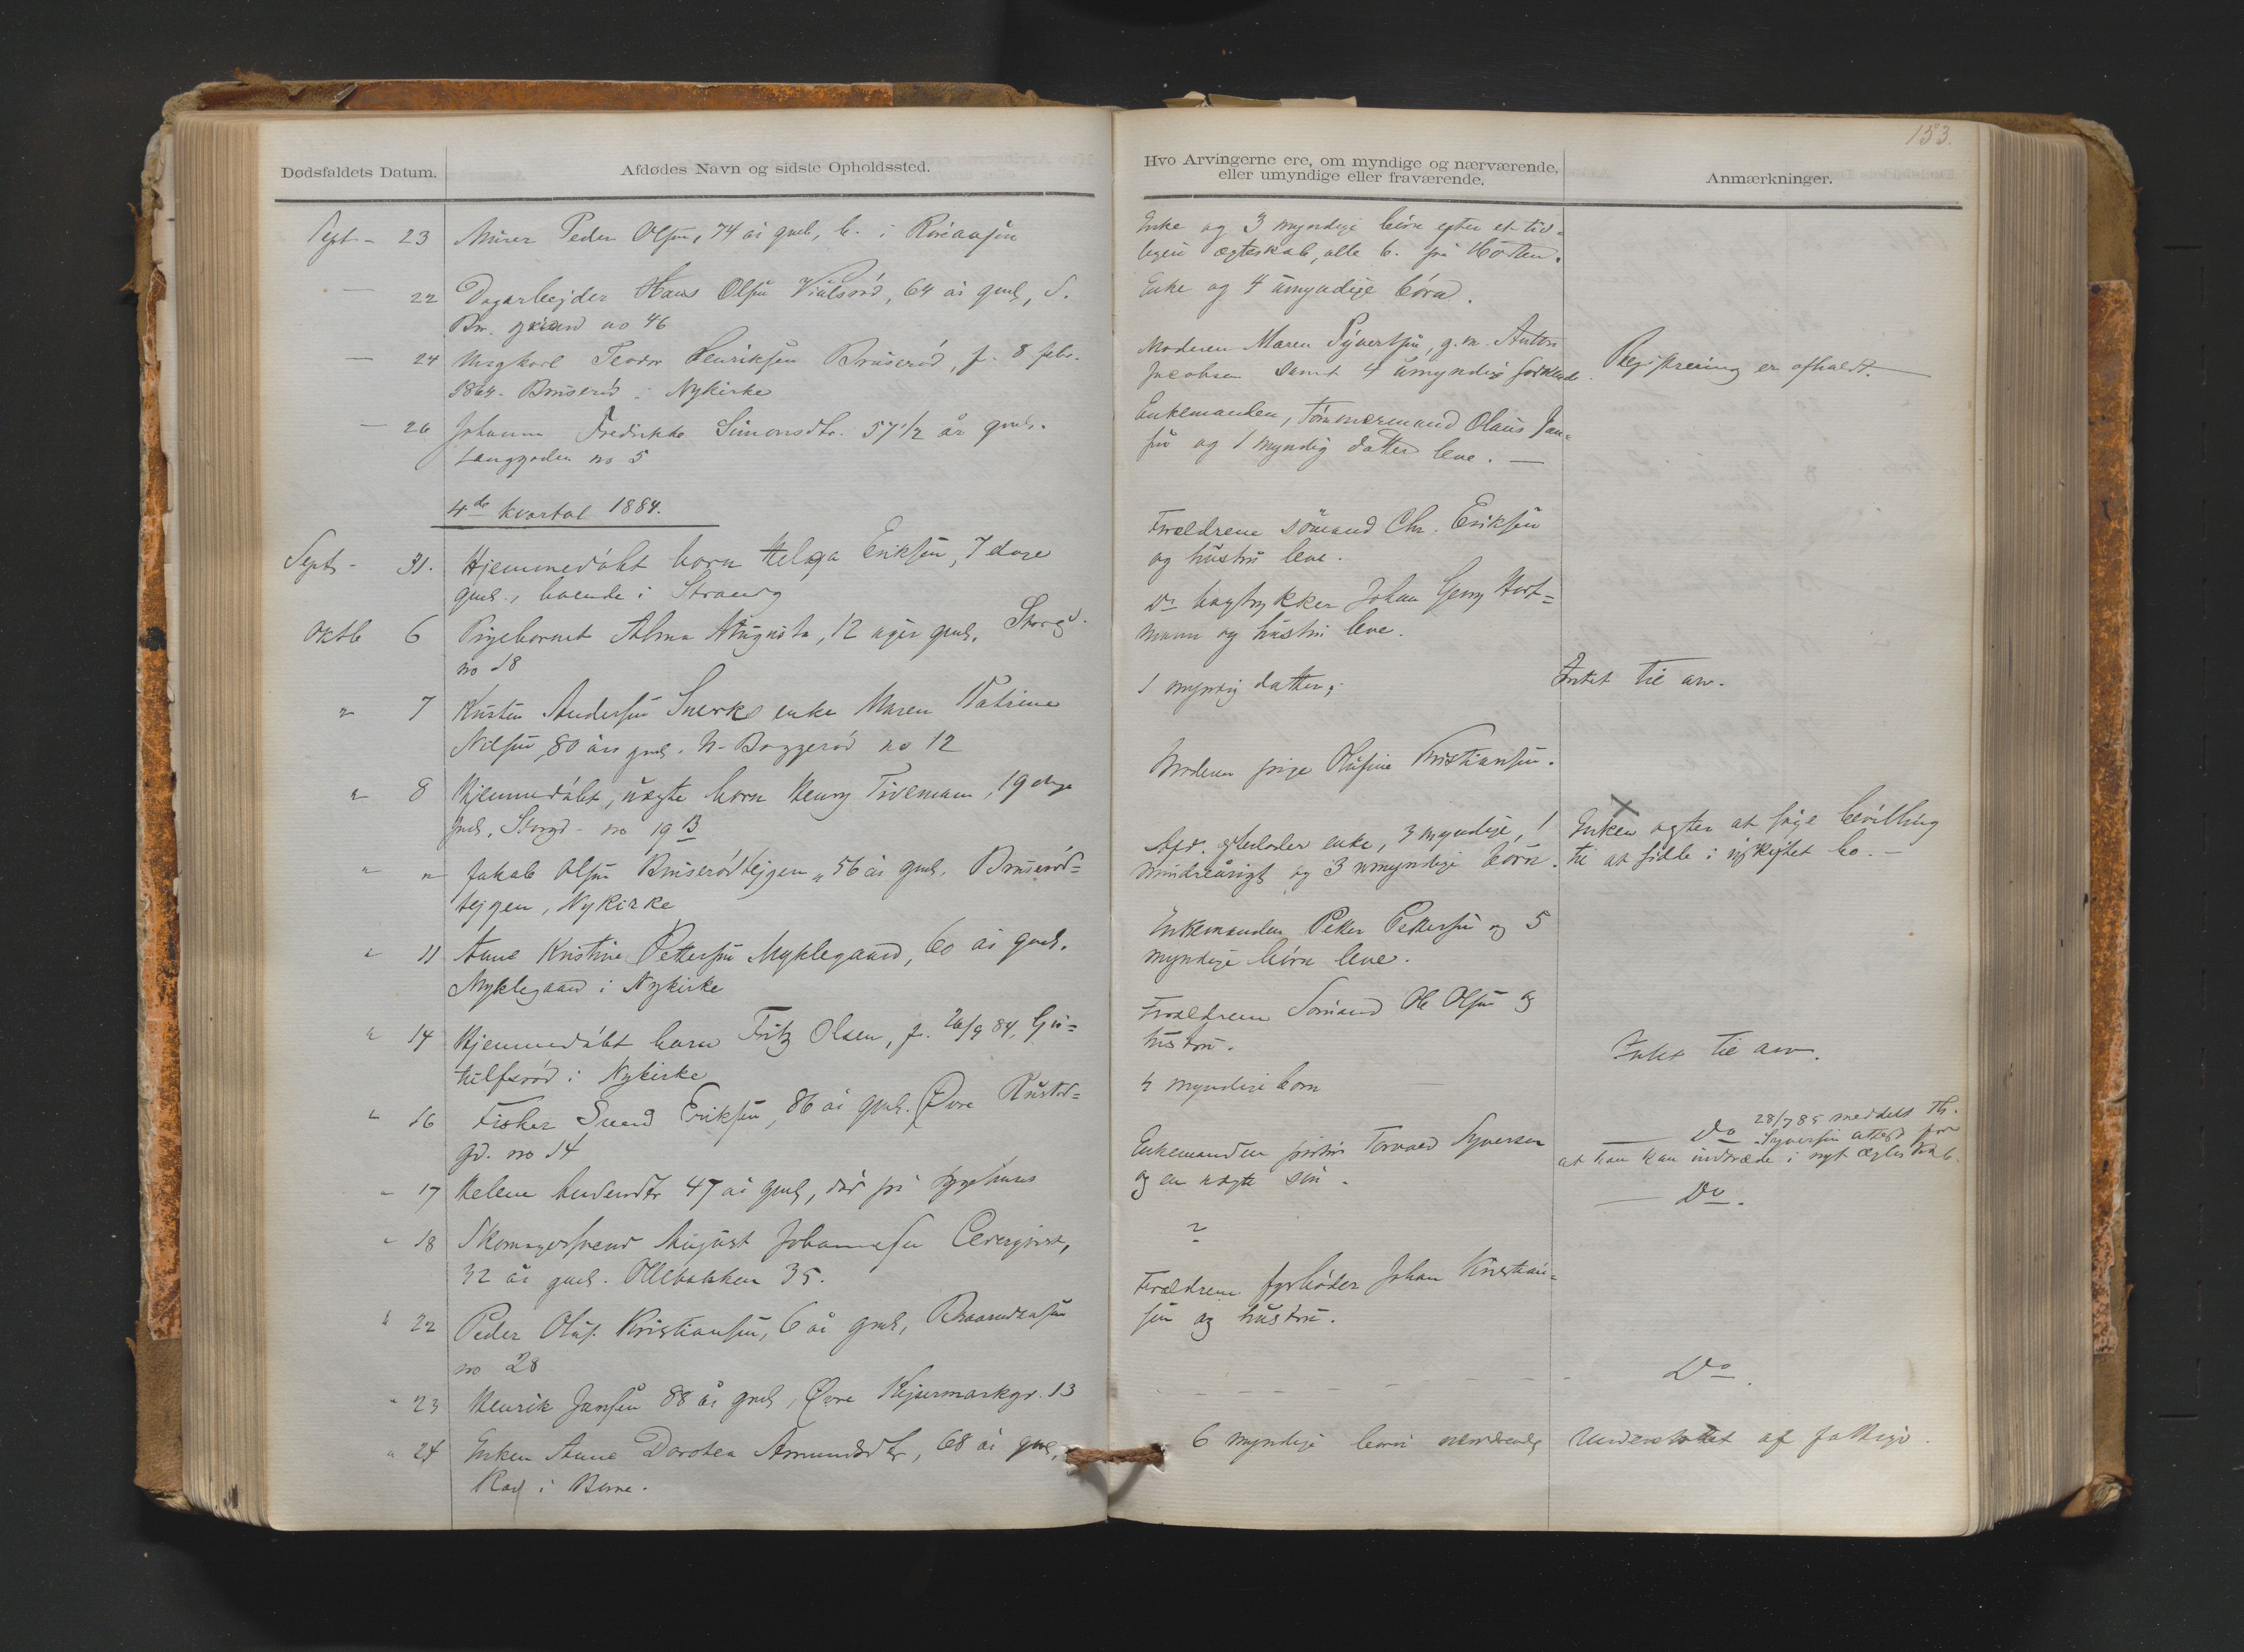 153.
Dødsfaldets Datum.
Afdødes Navn og sidste Opholdssted.
Sept - 23 Murer Peder Olsen, 74 år gml, b. i
— 22 Dagarbejder Hans Olsen 64 år gml, S.
Br. no 46
— 24 Ungkarl Teodor Henriksen Bruserød, f. 8 febr.
1864 - Bruserød i Nykirke
— 26 Johanne Fredrikke Simonsdtr. 57 1/2 år gml.
Langgaden no 5
4de kvartal 1884.
Sept - 31. Hjemmedøbt barn Helga Eriksen, 7 dage
gml., boende i Strandg
Oktb 6 Pigebarnet Alma Augusta, 12 uger gml. Storgd.
no 18
" 7 Kristen Andersen Snerks enke Maren Katrine
Nilsen 80 års gml. N- Baggerød no 12
" 8 Hjemmedøbt, uægte barn Henry Tivemann, 19 dage
gml. Storgd - no 19 B
" " Jakob Olsen Bruserødtejgen, 56 år gml. Bruserød=
tejgen, Nykirke
" 11 Anne Kristine Pettersen Myklegaard, 60 år gml.
Myklegaard i Nykirke
" 14 Hjemmedøbt barn Fritz Olsen, f. 26/9 84,
i Nykirke
" 16 Fisker Svend Eriksen, 86 år gml. Øvre
gd. no 14
" 17 Helene 47 år gml, død på sygehuset
" 18 Skomagersvend August Johannesen Cederqvist,
32 år gml. Ollebakken 35.
" 22 Peder Oluf Kristiansen, 6 år gml,
no 28
" 23 Henrik Jansen 88 år gml, Øvre Kejsermarkgd. 13
" 24 Enken Anne Dorotea Amundsdtr, 68 år gml,
i Borre.
Hvo Arvingerne ere, om myndige og nærværende,
eller umyndige eller fraværende.
Anmærkninger.
Enke og 3 myndige børn efter et tid=
ligere ægteskab, alle b. på Horten.
Enke og 4 umyndige børn.
Moderen Maren Syvertsen, g. m. Anton
Jacobsen samt 4 umyndige
Registrering er afholdt.
Enkemanden, Tømmermand Olaus Jan=
sen og 1 myndig datter leve. —
Forældrene sømand Chr. Eriksen
og hustru leve.
Do bogtrykker Johan Georg Hart=
mann og hustru leve.
1 myndig datter;
Intet til arv.
Moderen pige Olufine Kristiansen.
Afd. efterlader enke, 3 myndige, 1
mindreårigt og 3 umyndige børn.
Enken agter at søge bevilling
til at sidde i uskiftet bo. —
Enkemanden Petter Pettersen og 5
myndige børn leve.
Forældrene Sømand Ole Olsen og
hustru.
4 myndige børn
Intet til arv.
Enkemanden Torvald Syversen
og en uægte søn.
Do 28/7 85 meddelt Th.
Syversen attest for
at han kan indtræde i nyt ægteskab.
?
— Do.
Forældrene fyrbøder Johan Kristian=
sen og hustru.
Do.
6 myndige børn nærværende
Understøttet af fattigv.